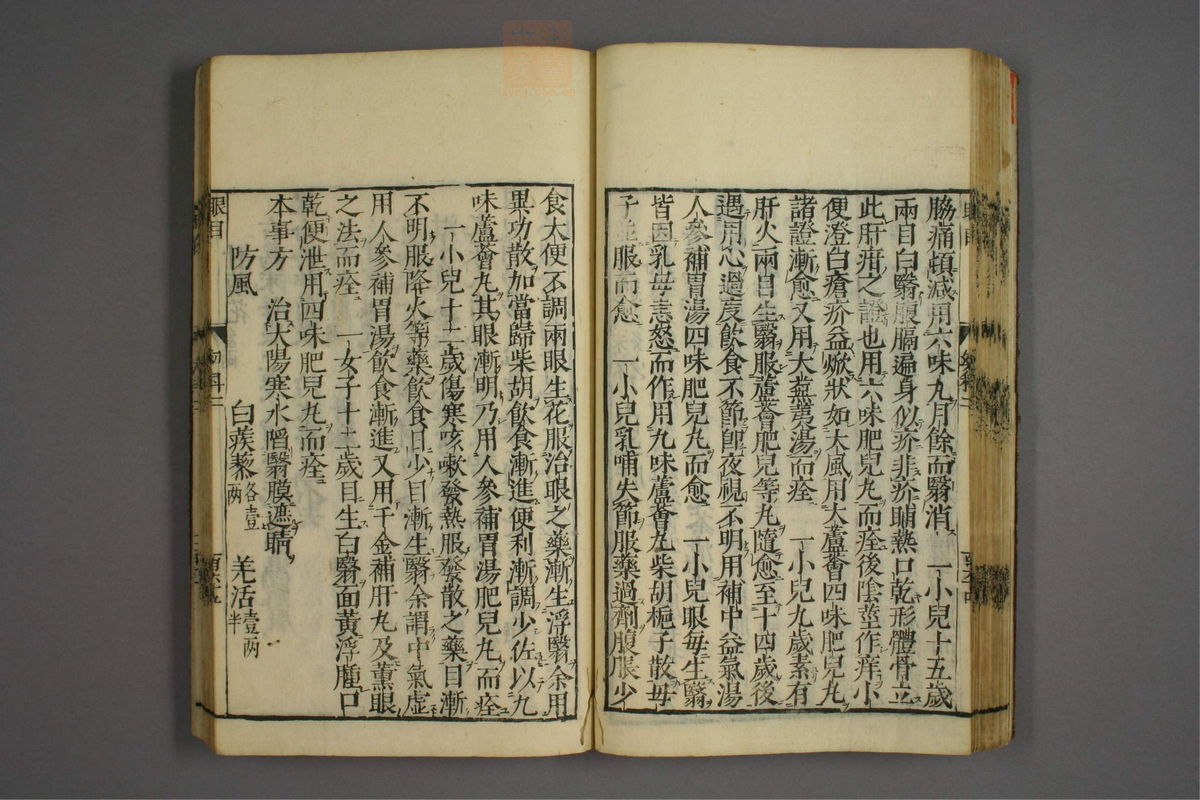 脇痛頓減用六味九月餘而翳消 一小兒十五歲
兩目白翳腹膈遍身似疥非疥晡熱口乾形體骨立
此肝疳之證也用六味肥兒丸而痊後陰莖作痒小
便澄白瘡疥益㾕狀如大風用大蘆薈四味肥兒丸
諸證漸愈又用大益黃湯而痊 一小兒九歲素有
肝火兩目生翳服蘆薈肥兒等丸隨愈至十四歲後
遇用心過度飲食不節卽夜視不明用補中益氣湯
人參補胃湯四味肥兒丸而愈 一小兒眼每生翳
皆因乳母恚怒而作用九味蘆薈丸柴胡梔子散母
子並服而愈 一小兒乳哺失節服藥過劑腹脹少
食大便不調兩眼生花服治眼之藥漸生浮翳余用
異功散加當歸柴胡飲食漸進便利漸調少佐以九
味蘆薈丸其眼漸明乃用人參補胃湯肥兒丸而痊
一小兒十二歲傷寒咳嗽發熱服發散之藥目漸
不明服降火等藥飲食日少目漸生翳余謂中氣虛
用人參補胃湯飲食漸進又用千金補肝丸及薰眼
之法而痊 一女子十二歲目生白翳面黃浮腫口
乾便泄用四味肥兒丸而痊
本事方 治太陽寒水陷翳膜遮睛
防風 白蒺藜各壹兩 羌活壹兩半
眼目
幼科二